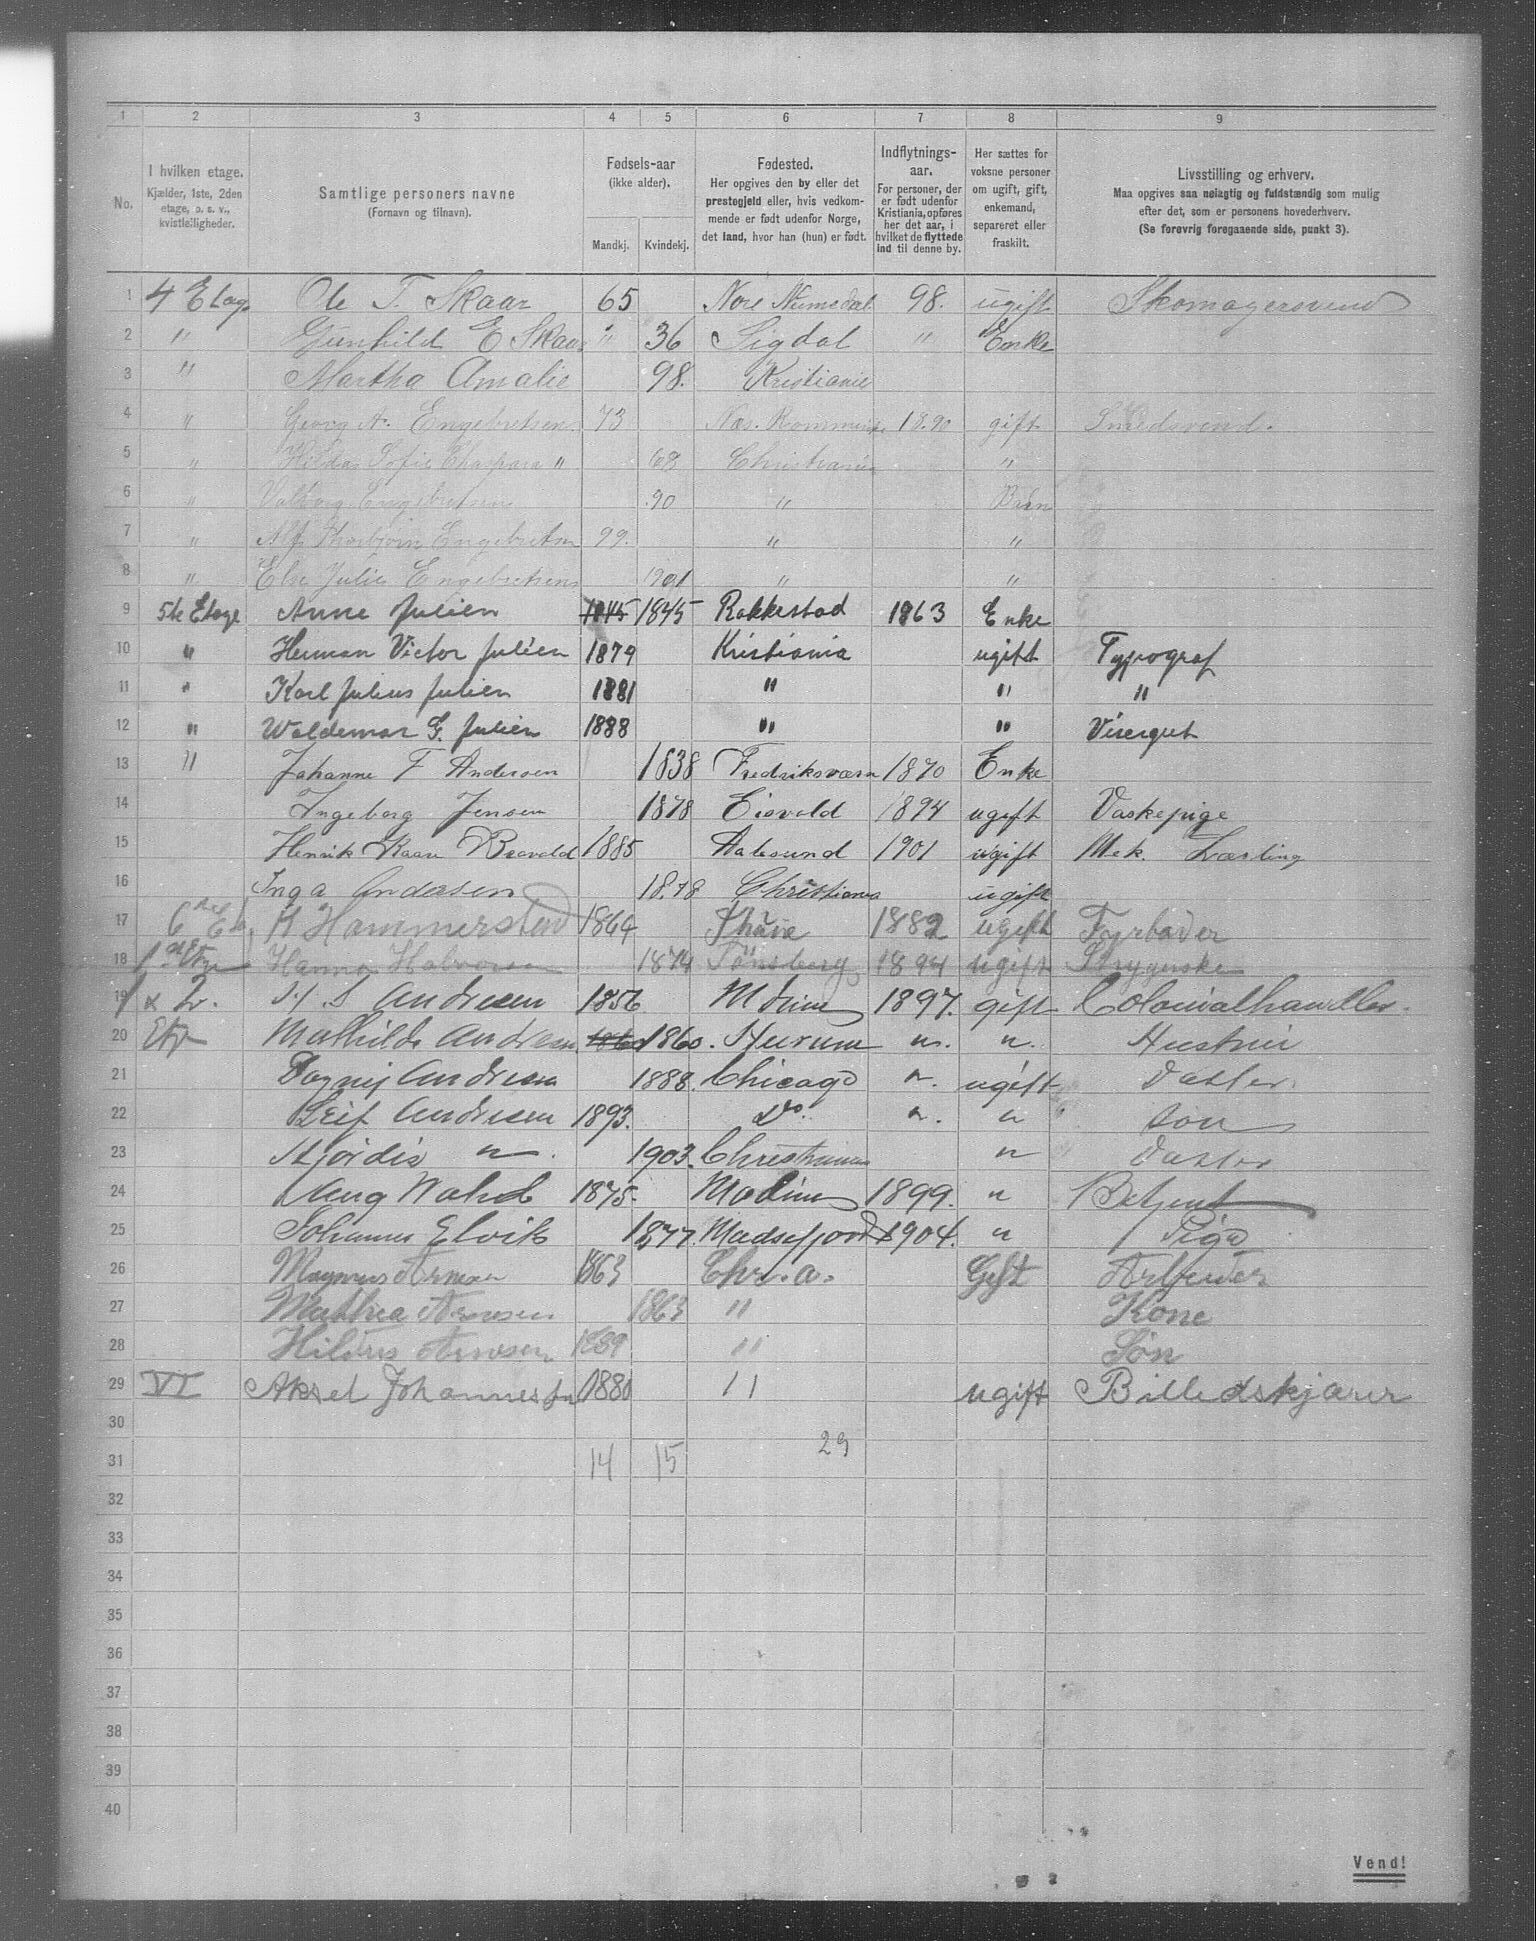 1 2 3 4 5 6 7 8 9
No.
I hvilken etage.
Kjælder, 1ste, 2den
etage, o. s. v.,
kvistleiligheder.
Samtlige personers navne
(Fornavn og tilnavn).
Fødsels-aar
(ikke alder).
Mandkj. Kvindekj.
Fødested.
Her opgives den by eller det
prestegjeld eller, hvis vedkom-
mende er født udenfor Norge,
det land, hvor han (hun) er født.
Indflytnings-
aar.
For personer, der
er født udenfor
Kristiania, opføres
her det aar, i
hvilket de flyttede
ind til denne by.
Her sættes for
voksne personer
om ugift, gift,
enkemand,
separeret eller
fraskilt.
Livsstilling og erhverv.
Maa opgives saa nøiagtig og fuldstændig som mulig
efter det, som er personens hovederhverv.
(Se forøvrig foregaaende side, punkt 3).
1 4 Etage Ole T. Skaar 65 Nore Numedal 98. ugift Skomagersvend
2 " Gunhild E Skaar " 36 Sigdal " Enke
3 " Martha Amalie 98. Kristiania
4 " Georg A. Engebretsen 73 Næs Rommerike 18.90 gift Smedsvend.
5 " Hilda Sofie " 68 Christiania "
6 " Valborg Engebretsen .90 " Barn
7 " Alf Thorbjørn Engebretsen 99. " "
8 " Else Julie Engebretsen 1901 " "
9 5te Etage Anne Julien 1845 1845 Rakkestad 1863 Enke
10 " Herman Victor Julien 1879 Kristiania ugift Typograf
11 " Karl Julius Julien 1881 " " "
12 " Waldemar G. Julien 1888 " " Visergut
13 " Johanne F Andersen 1838 Fredriksværn 1870 Enke
14 Ingeborg Jensen 1878 Eisvold 1894 ugift Vaskepige
15 Henrik Kaare 1885 Aalesund 1901 ugift Mek. Lærling
16 Inga Andersen 18.78 Christiania ugift
17 6 H Hammerstad 1864 1882 ugift Fyrbøder
18 Hanna Halvorsen 1874 Tønsberg 1894 ugift Strygerske
19 S Andresen 1856 1897. gift Colonialhandler.
20 Etge Mathilde Andresen 1860 1860. Hurum " ". Hustru
21 Dagny Andresen 1888. Chicago ". ugift Datter
22 Leif Andresen 1893. Do. ". " Søn
23 Hjørdis " 1903. Christiania " Datter
24 Aug 1875. 1899. " Betjent
25 Johanne Elvik 1877. 1904. " Pige
26 Magnus Arnesen 1863 Chr.a. Gift Arbeider
27 Mathea Arnesen 1863 " Kone
28 Arnesen 1889 " Søn
29 VI Aksel Johannesen 1880 " ugift Billedskjærer
30
31 14 15 29
32
33
34
35
36
37
38
39
40
Vend!